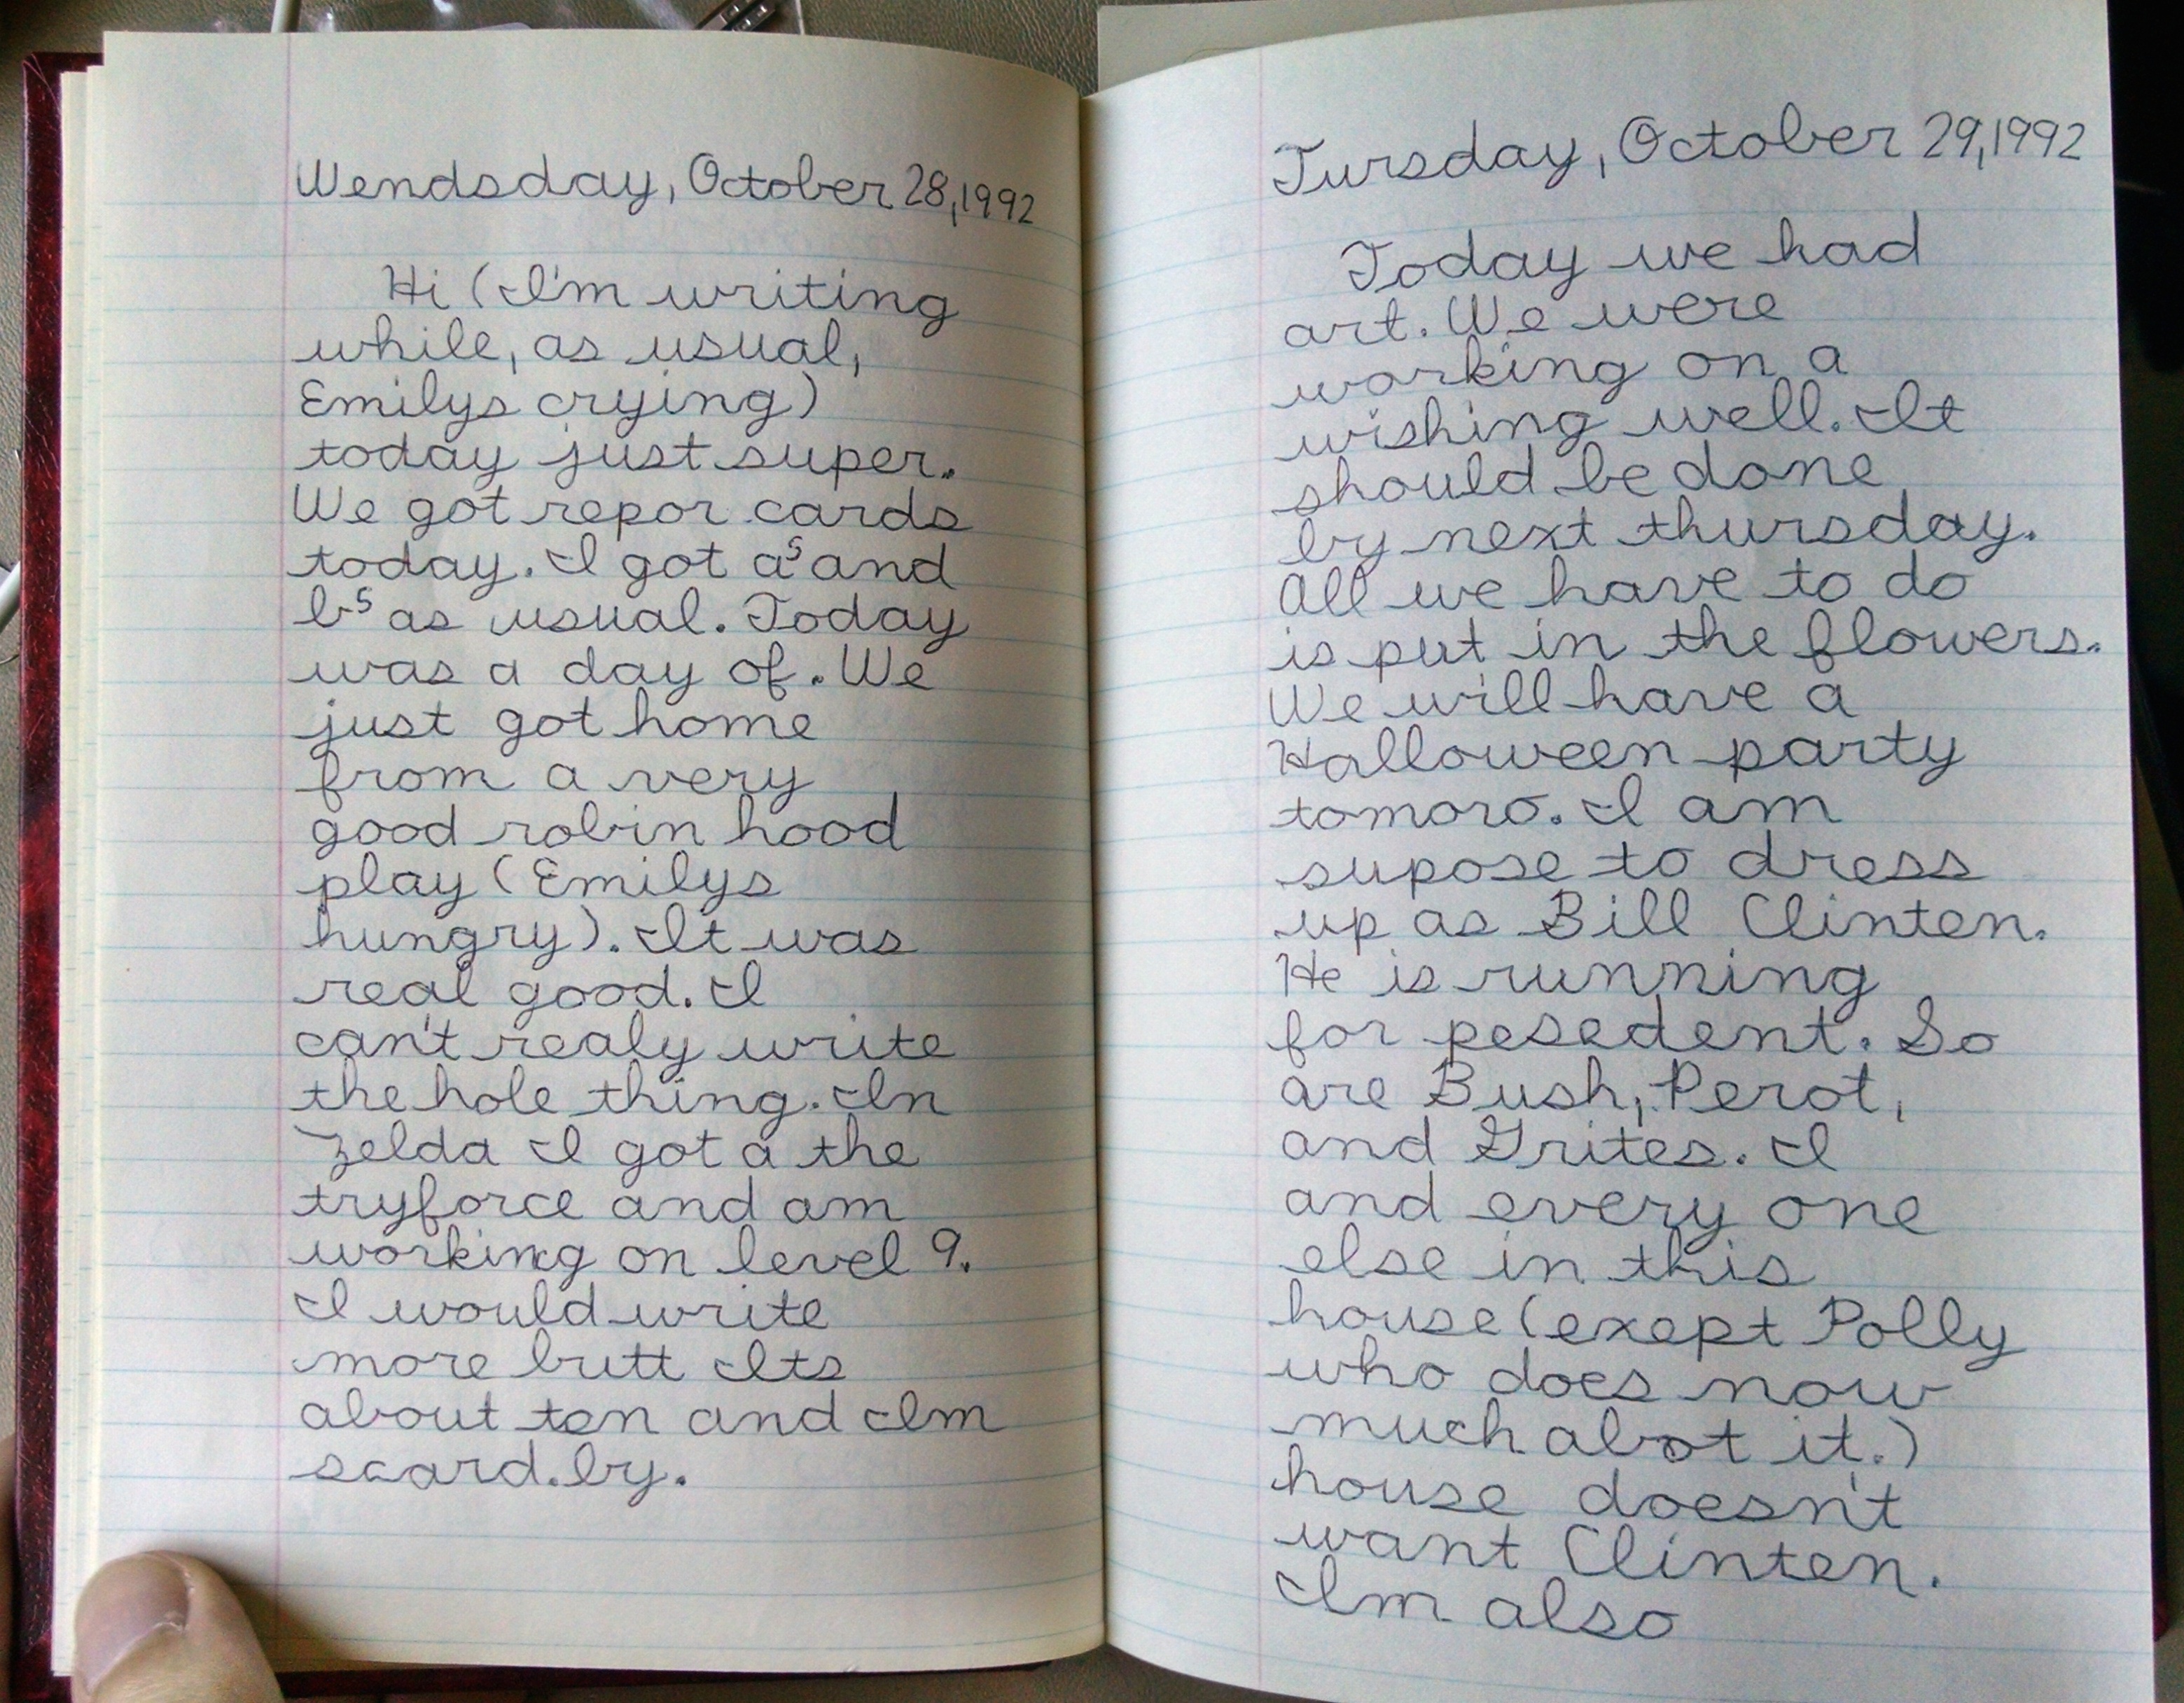 Wendsday, October 28, 1992
Hi (I'm writing
while, as usual,
Emilys crying)
today just super.
We got repor cards
today. I got a's and
b's as usual. Today
was a day of. We
just got home
from a very
good robin hood
play (Emilys
hungry). It was
real good. I
can't realy write
the hole thing. In
Zelda I got a the
tryforce and am
working on level 9.
I would write
more butt Its
about ten and Im
scard. by.
Tursday, October 29, 1992
Today we had
art. We were
working on a
wishing well. It
should be done
by next thursday.
All we have to do
is put in the flowers.
We will have a
Halloween party
tomoro. I am
supose to dress
up as Bill Clinten.
He is running
for pesedent. So
are Bush, Perot,
and Grites. I
and every one
else in this
house (exept Polly
who does now
much abot it.)
house doesn't
want Clinten.
Im also